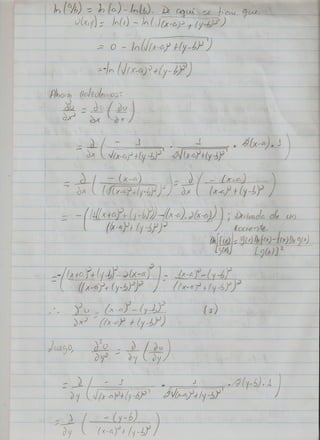 ln(a/b) = ln(a) - ln(b). De aquí se tiene que
u(x,y) = ln(1) - ln(√(x-a)² + (y-b)²)
= 0 - ln(√(x-a)² + (y-b)²)
= -ln(√(x-a)² + (y-b)²)
Ahora calculemos:
∂²u/∂x² = ∂u/∂x (∂u/∂x)
= ∂/∂x ( - 1/√(x-a)² + (y-b)² · 1/2√(x-a)² + (y-b)² · 2(x-a)·1 )
= ∂/∂x ( -(x-a)/(√(x-a)² + (y-b)²)² ) = ∂/∂x ( -(x-a)/(x-a)² + (y-b)² )
= - ( 1((x-a)² + (y-b)²) - (x-a)·2(x-a)/((x-a)² + (y-b)²)² ) ; Derivada de un
cociente
[f(x)/g(x)] = g(x) f(x) - f(x) g(x)/[g(x)]²
= - ( (x-a)² + (y-b)² - 2(x-a)²/((x-a)² + (y-b)²)² ) = (x-a)² - (y-b)²/((x-a)² + (y-b)²)²
∴ ∂²u/∂x² = (x-a)² - (y-b)²/((x-a)² + (y-b)²)²
Luego, ∂²u/∂y² = ∂/∂y (∂u/∂y)
= ∂/∂y ( - 1/√(x-a)² + (y-b)² · 1/2√(x-a)² + (y-b)² · 2(y-b)·1 )
= ∂/∂y ( -(y-b)/(x-a)² + (y-b)² )